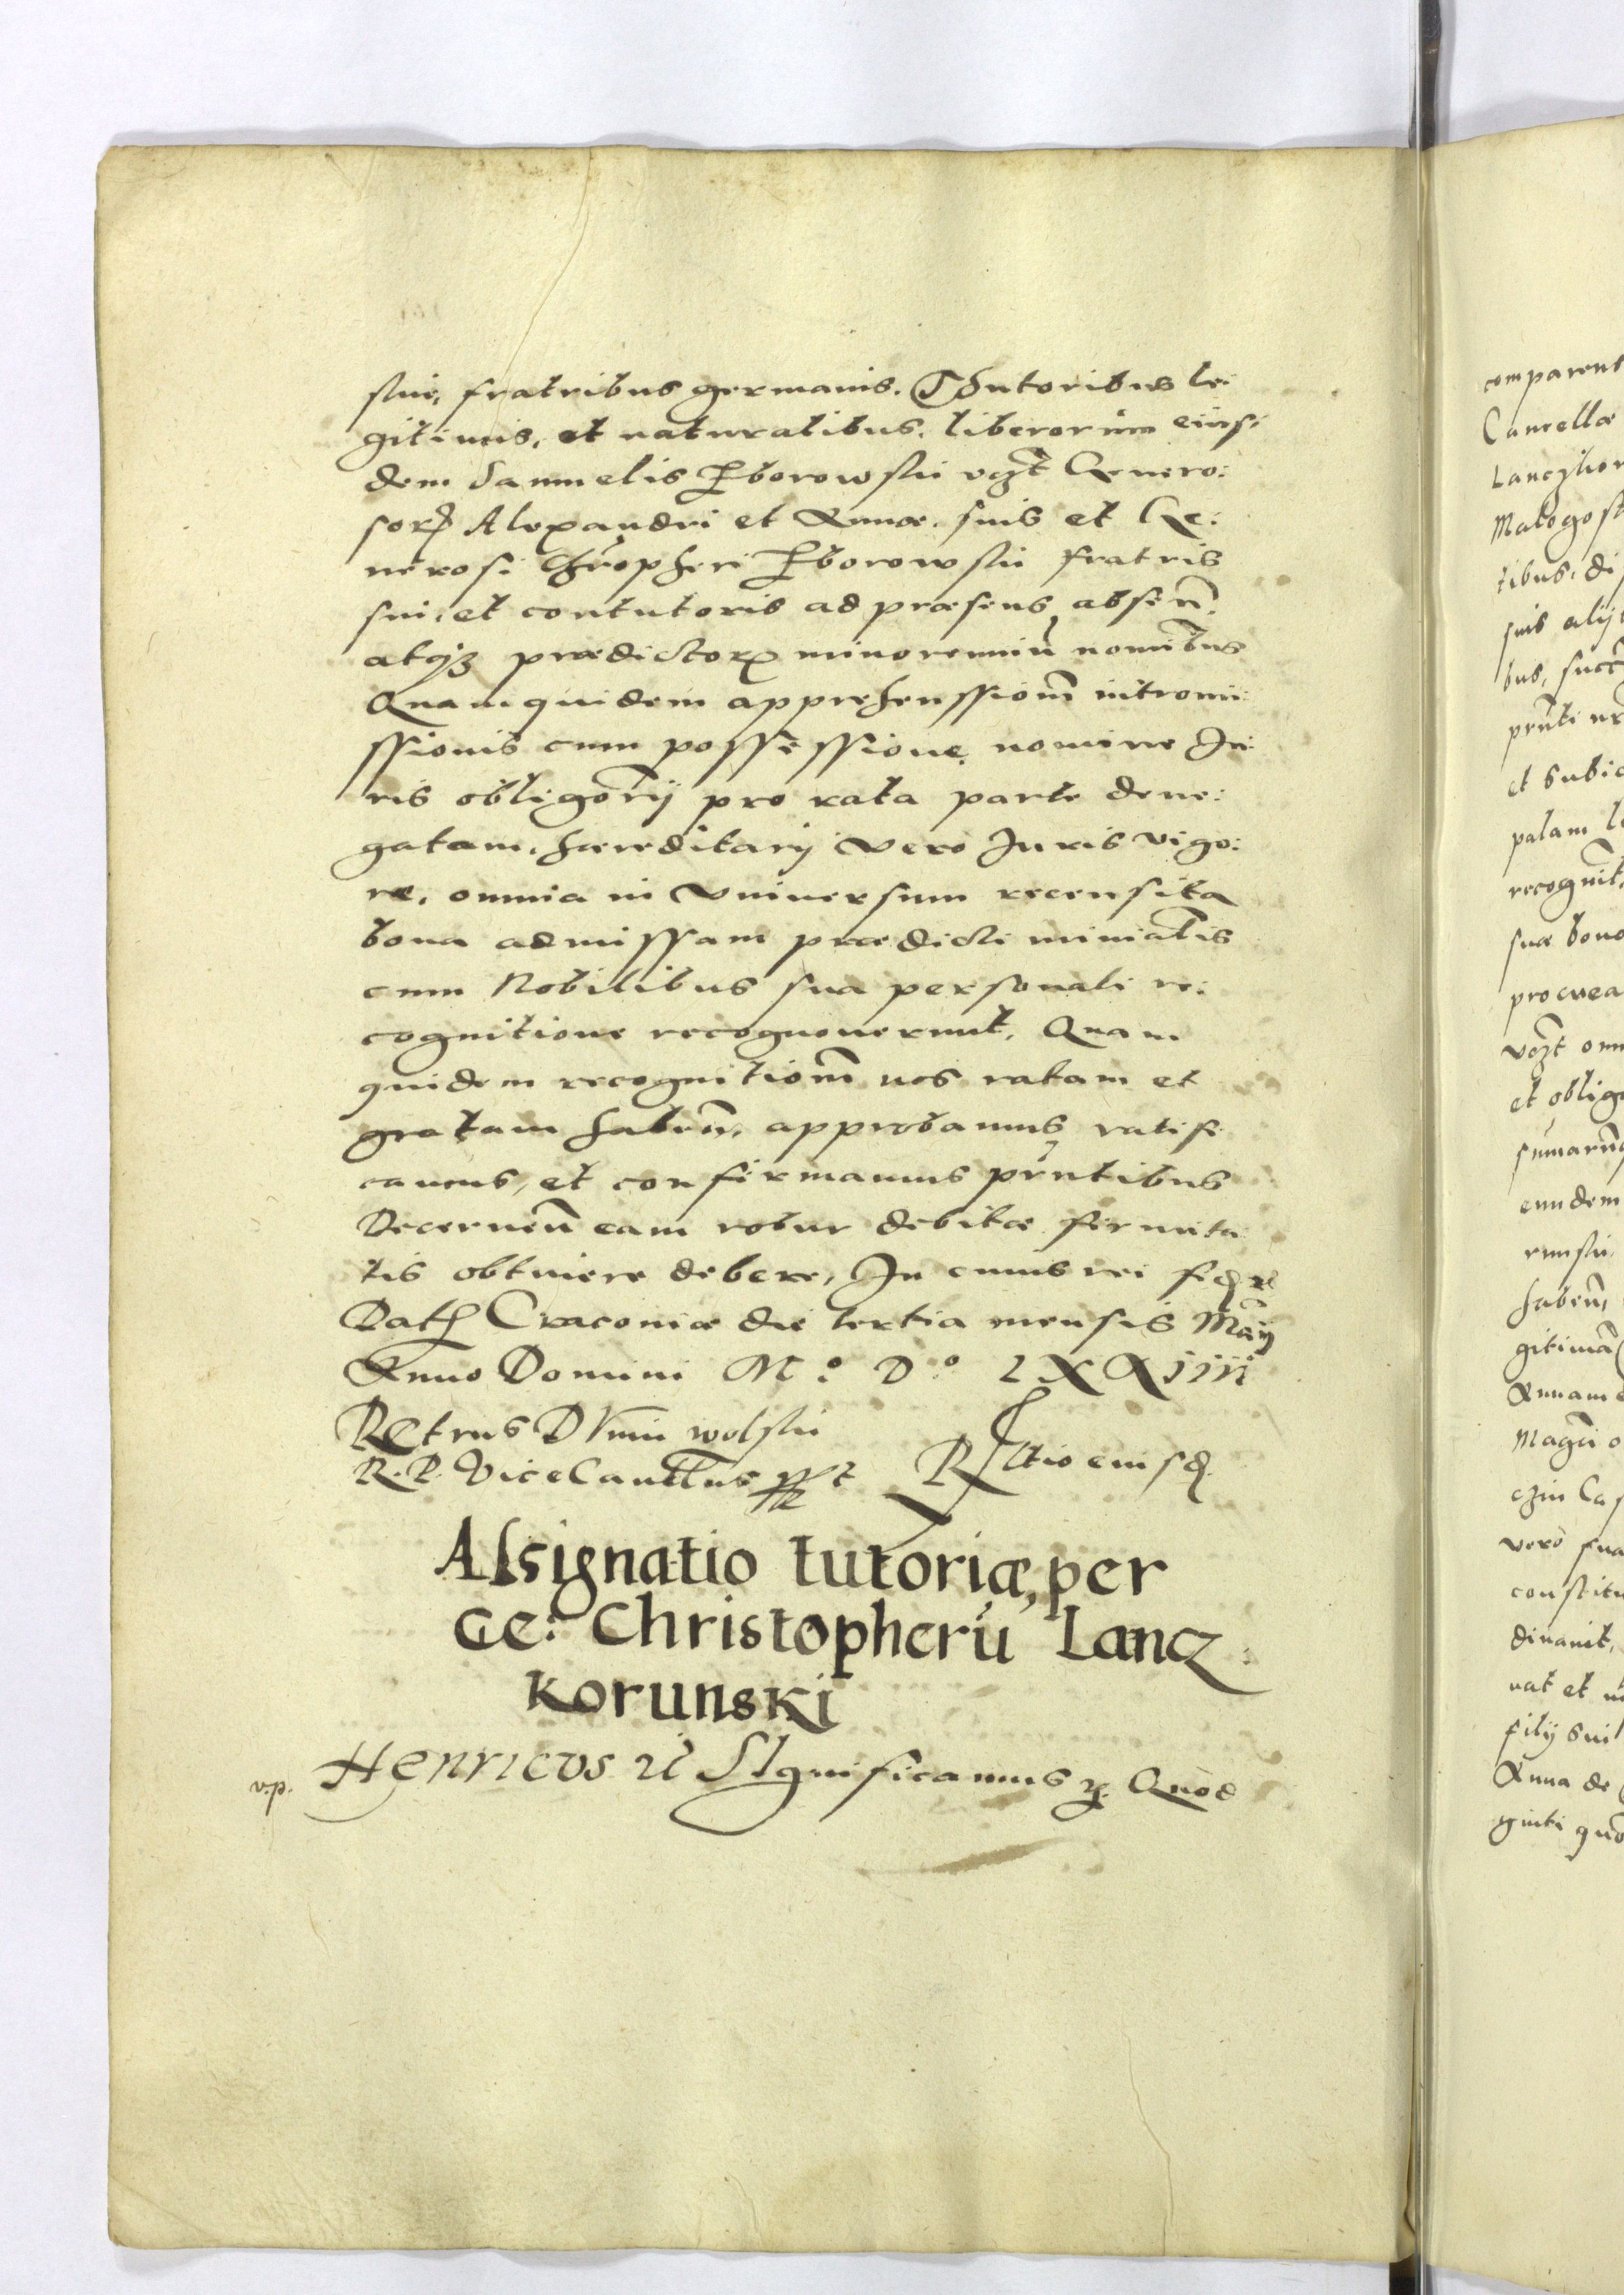 skie, fratribus germanis. Thutoribus le:
gitimis, et naturalibus, liberorum eius:
dem Samuelis Zborowskii vczt Genero:
sorum Alexandri et Annæ. suis et Ge:
nerosi Chrõpheri Zborowskii fratris
sui, et contutoris ad præsens absen̄.
atqȝ prædictorꝝ minorenniũ nomĩbus
Quamquidem apprehenssionẽ intromi:
ssionis cum possessione, nomine Iu:
ris obligõrij pro rata parte dene:
gatam, hæreditarij vero Iuris vigo:
re, omnia in vniversum recensita
bona admissam prædicti minĩalis
cum Nobilibus sua personali re:
cognitione recognouerunt, Quam
quidem recognitionẽ nos ratam et
gratam haben̄, approbamus ratifi
camus, et confirmamus prñtibus
Decernen̄ eam robur debitæ firmita
tis obtinere debere, In cuius rei fidē
Datum Cracoviæ die tertia mensis Maij
Anno Domini M.o D.o LXXiiij
Petrus Dunin wolskii
R. P. ViceCancellrius sst Rltio eiusd.
Assignatio tutoriæ, per
Ge: Christopherũ Lancz:
korunski
v.p. Henricvs etc̃ Significamus etc. Quod
comparens
Cancellæ
Lanczkor
Małogosc
tibus, di
suis alijs
bus, succ
prñti nr
et subie
palam
recognit
suæ bono
procrea
vczt omn
et oblig
eundem
runskii
haben̄,
gitimã
Annam
Magcã
czin Cas
vero sua
constitu
dinavit,
nat et
filij sui
Anna de
ginti quõ